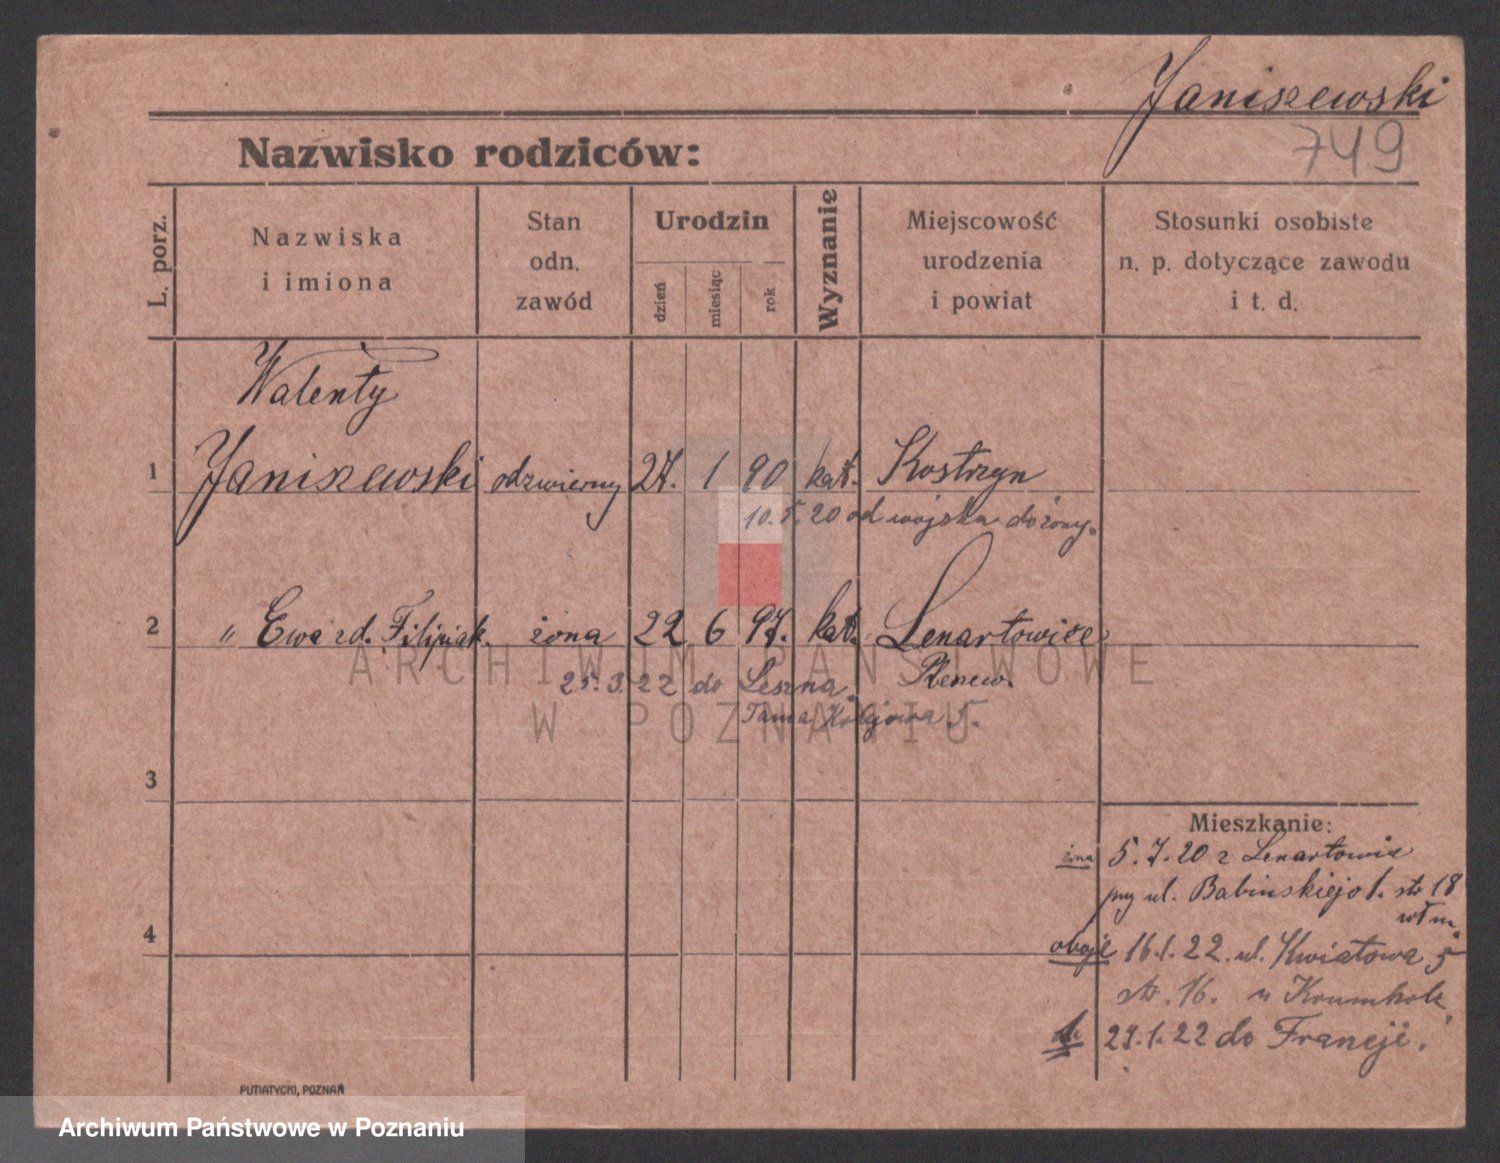 Janiszewski
749
Nazwisko rodziców:
L. porz.
Nazwiska
i imiona
Stan
odn.
zawód
Urodzin
dzień
miesiąc
rok
Wyznanie
Miejscowość
urodzenia
i powiat
Stosunki osobiste
n. p. dotyczące zawodu
i t. d.
Walenty
1 Janiszewski odzwierny 27. 1 90 kat. Kostrzyn
10. 5. 20 od wojska do żony.
2 " Ewa zd. Filipiak. żona 22 6 97. kat. Lenartowice
25. 3. 22 do Leszna,
Tama Kolejowa 5.
3
4
Mieszkanie:
żona 5. 7. 20 z Lenartowic
przy ul. Babińskiego 1. str 18
wł m.
oboje 16.1.22. ul. Kwiatowa 5
str. 16. u Krumholz,
1. 27.1.22 do Francji.
PUTIATYCKI, POZNAŃ
ARCHIWUM PAŃSTWOWE
W POZNANIU
Archiwum Państwowe w Poznaniu